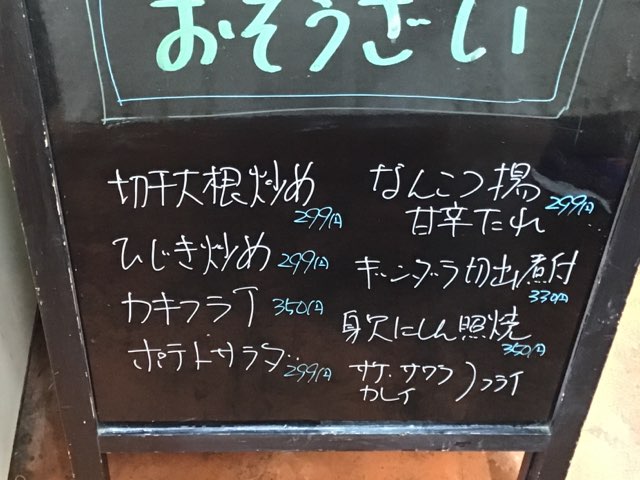 おそうざい
切干大根炒め
299円
ひじき炒め 299円
カキフライ 350円
ポテトサラダ 299円
なんこつ揚
甘辛たれ 299円
ギンダラ切出煮付
330円
身欠にしん照焼
350円
サケ・サワラ
カレイ
フライ